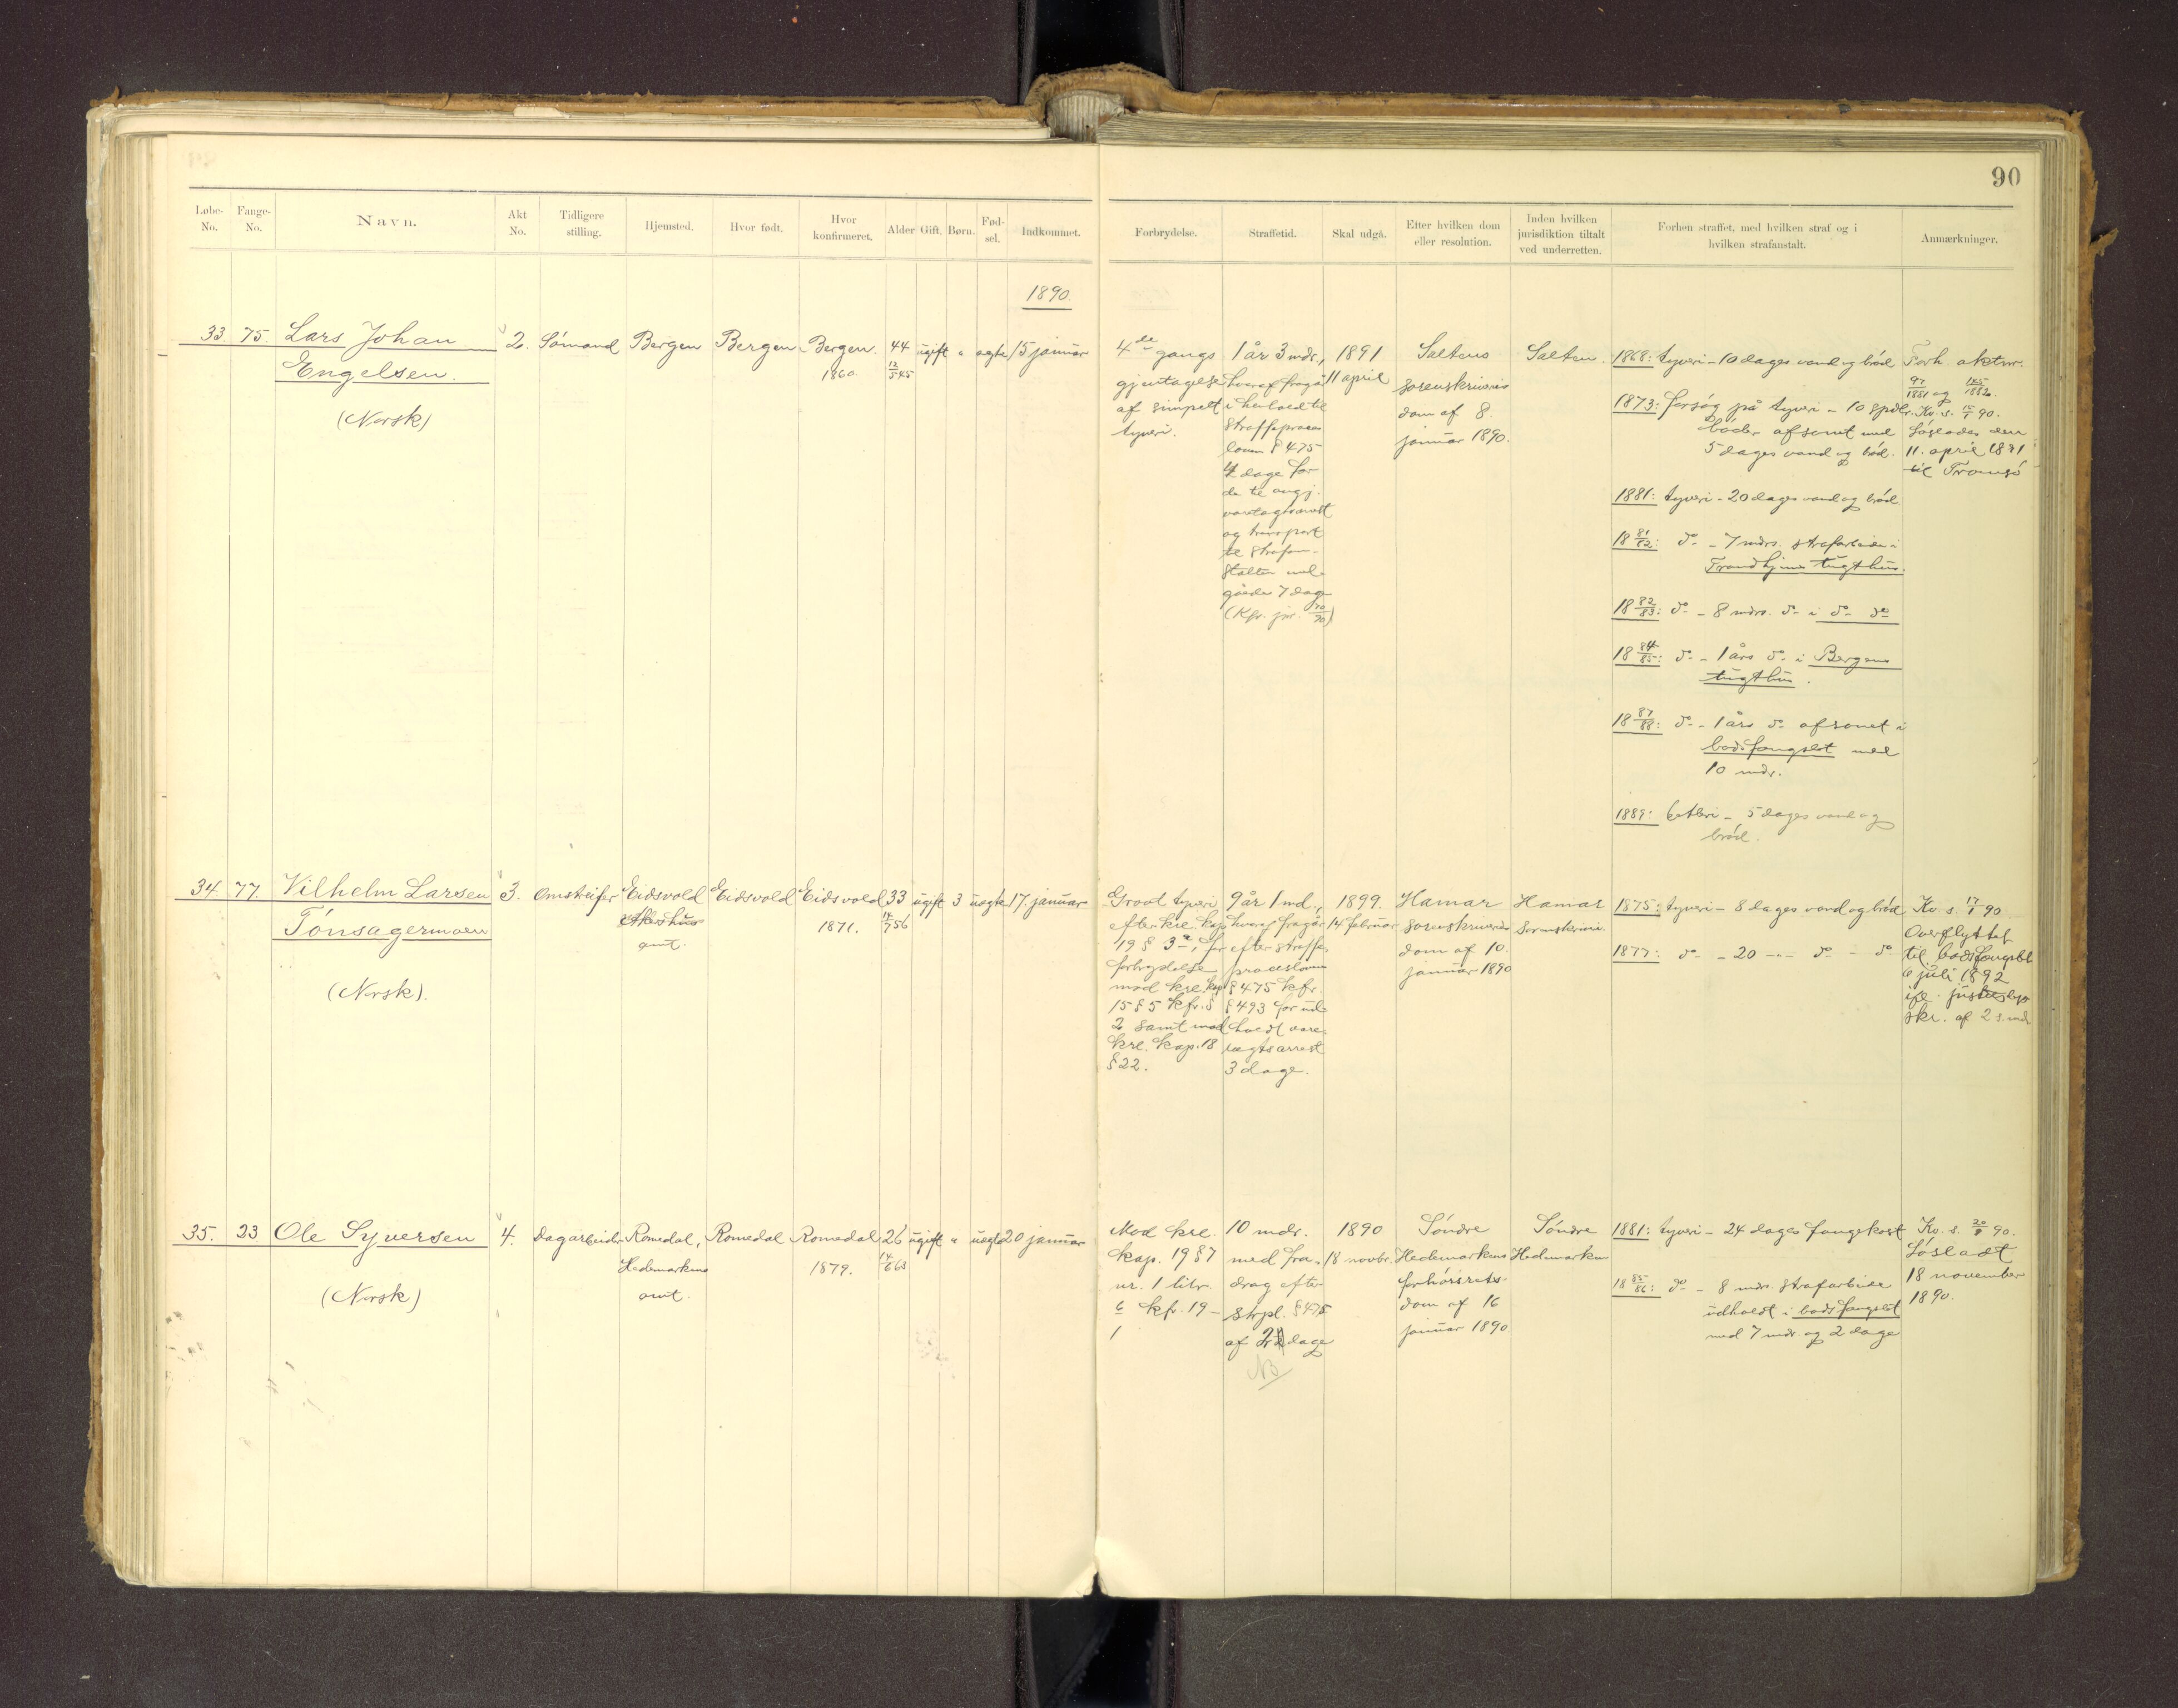 90
Løbe-No.
Fange-No.
Navn.
Akt No.
Tidligere stilling.
Hjemsted.
Hvor født.
Hvor konfirmeret.
Alder
Gift.
Børn.
Fød-sel.
Indkommet.
Forbrydelse.
Straffetid.
Skal udgå.
Efter hvilken dom eller resolution.
Inden hvilken jurisdiktion tiltalt ved underretten.
Forhen straffet, med hvilken straf og i hvilken strafanstalt.
Anmærkninger.
1890.
33 75. Lars Johan
Engelsen.
(Norsk)
2. Sömand Bergen Bergen Bergen. 44 ugift " ægte 15 januar
1860. 12/5 45
4de gangs
gjentagelse
af simpelt
tyveri.
1 år 3 mdr.,
hvoraf fragår
i henhold til
straffeproces
loven § 475
4 dage for
varetægtsarrest
og transport
til strafan-
stalten med-
gåede 7 dage
1891
11 april
Saltens
sorenskriveris
dom af 8.
januar 1890.
Salten.
1868: tyveri - 10 dages vand og bröd
1873: forsøg på tyveri - 10 spdlr.
böder afsonet med
5 dages vand og bröd.
1881: tyveri - 20 dages vand og bröd.
18 81/82: do - 7 mdrs. strafarbeide i
Trondhjems tugthus.
18 82/83: do - 8 mdrs. do i do do
18 84/85: do - 1 års do i Bergens
tugthus.
18 87/88: do - 1 års do afsonet i
bodsfængslet med
10 mdr.
1889: betleri - 5 dages vand og
bröd.
Forh. aktnr.
97/1881 og 145/1882.
Kv. s. 15/1 90.
Löslades den
11. april 1891
til Tromsö
34 77. Vilhelm Larsen
Tönsagermoen
(Norsk).
3. Omstreifer Eidsvold Eidsvold Eidsvold 33 ugift 3 uægte 17. januar
Akershus
amt.
1871. 14/7 56
Grovt tyveri
efter kre. kap
19 § 3 a, for
forbrydelse
mod kre. kap
15 § 5 kfr. §
2 samt mod
kre. kap. 18
§ 22.
9 år 1 md.,
hvoraf fragår
efter straffe-
procesloven
§ 475 kfr.
§ 493 for ud-
holdt vare-
tægtsarrest
3 dage.
1899.
14 februar
Hamar
sorenskriveris
dom af 10.
januar 1890
Hamar
Sorenskriveri.
1875: tyveri - 8 dages vand og bröd
1877: do - 20 -"- do - do
Kv. s. 17/1 90
Overflyttet
til bodsfængslet
6 juli 1892
ifl. justitsdeps
skr. af 2 s. md.
35. 23 Ole Syversen
(Norsk)
4. Dagarbeider Romedal, Romedal Romedal 26 ugift " uægte 20 januar
Hedemarkens
amt.
1879. 14/6 63
Mod kre.
kap. 19 § 7
nr. 1 litr.
6 kfr. 19 -
1
10 mdr.
med fra-
drag efter
strpl. § 475
af 2 dage
NB
1890
18 novbr.
Söndre
Hedemarkens
forhörsrets
dom af 16
januar 1890
Söndre
Hedemarken
1881: tyveri - 24 dages fangekost
18 85/86: do - 8 mdr. strafarbeide
udholdt i bodsfængslet
med 7 mdr. og 2 dage
Kv. s. 20/1 90.
Lösladt
18 november
1890.